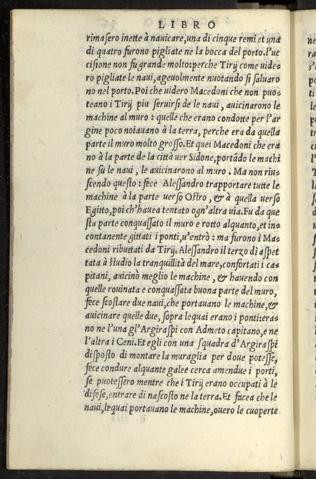 LIBRO
rimasero inette à nauicare, una di cinque remi et una
di quatro furono pigliate ne la bocca del porto. l'uc
cisione non fu grande molto: perche Tirij come uide=
ro pigliate le naui, ageuolmente nuotando si saluaro
no nel porto. Poi che uidero Macedoni che non puo=
teano i Tirij piu seruirsi de le naui, auicinarono le
machine al muro: quelle che erano condotte per l'ar
gine poco noiauano à la terra, perche era da quella
parte il muro molto grosso. Et quei Macedoni che era
no à la parte de la città uer Sidone, portãdo le machi
ne su le naui, le auicinarono al muro. Ma non rius=
scendo questo: fece Alessandro trapportare tutte le
machine à la parte uerso Ostro, & à quella uerso
Egitto, poi ch'hauea tentato ogn'altra uia. Fu da que
sta parte conquassato il muro e rotto alquanto, et ino
contanente gittati i ponti, u'entrò: ma furono i Ma=
cedoni ributtati da Tirij. Alessandro il terzo dì aspet
tata à studio la tranquillità del mare, confortati i ca=
pitani, auicinò meglio le machine, & hauendo con
quelle rouinata e conquassata buona parte del muro,
fece scostare due naui, che portauano le machine, &
auicinare quelle due, sopra le quai erano i pontiera=
no ne l'una gl'Argiraspi con Admeto capitano, e ne
l'altra i Ceni. Et egli con una squadra d'Argiraspi
disposto di montare la muraglia per doue potesse,
fece condure alquante galee cerca amendue i porti,
se puotessero mentre che i Tirij erano occupati à le
difese, entrare di nascosto ne la terra. Et facea che le
naui, lequai portauano le machine, ouero le cuoperte